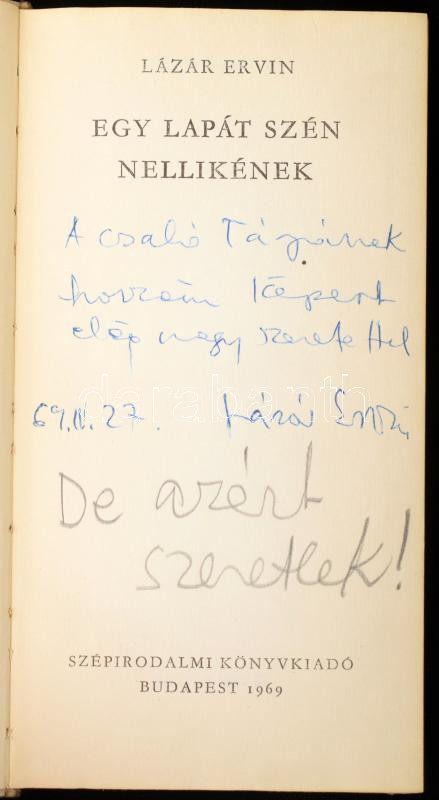 LÁZÁR ERVIN
EGY LAPÁT SZÉN
NELLIKÉNEK
A csaló
hozzám képest
elég nagy szeretettel
69. IV. 27. Lázár Ervin
darabanth
De azért
szeretlek!
SZÉPIRODALMI KÖNYVKIADÓ
BUDAPEST 1969